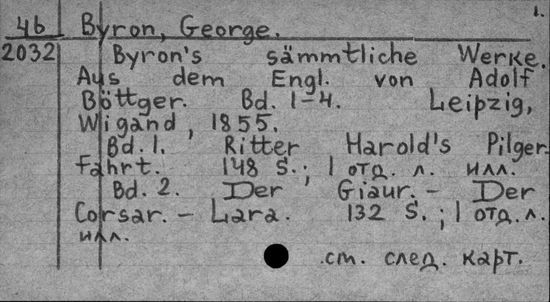 1.
46 Byron, George.
2032 Byron's sämmtliche Werke.
Aus dem Engl. von Adolf
Böttger. Bd. 1-4. Leipzig,
Wigand, 1855.
Bd. 1. Ritter Harold's Pilger
fahrt. 148 S.; 1 отд. л. илл.
Bd. 2. Der Giaur. - Der
Corsar. - Lara. 132 S.; 1 отд. л.
илл.
.ст. след. карт.